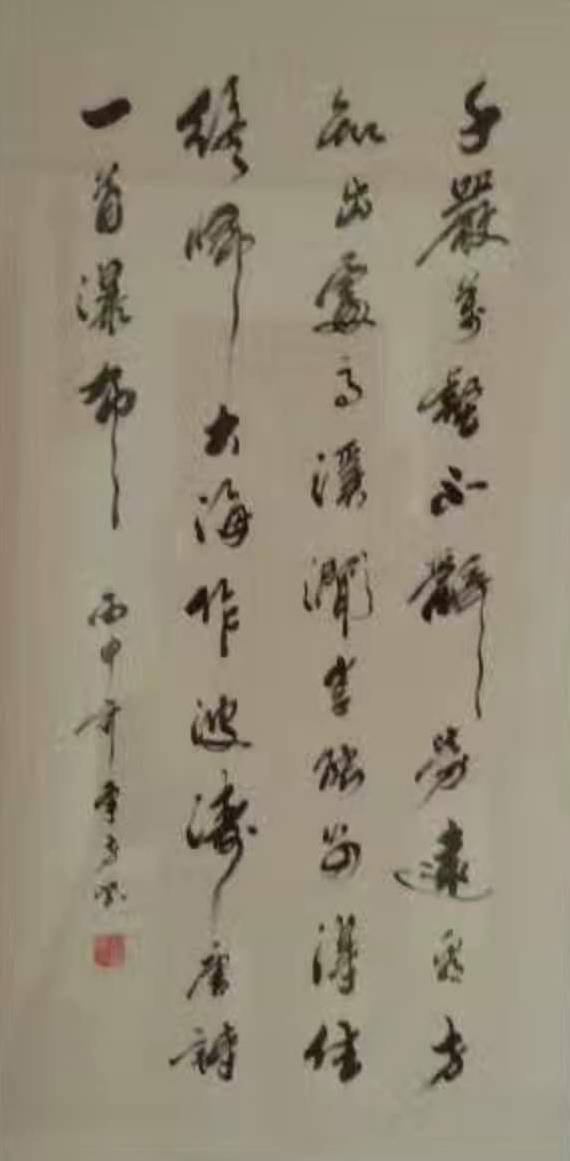 千嚴萬壑不辭勞遠看方
知出處高溪澗豈能留得住
終歸大海作波濤唐詩
一首瀑布
丙申年